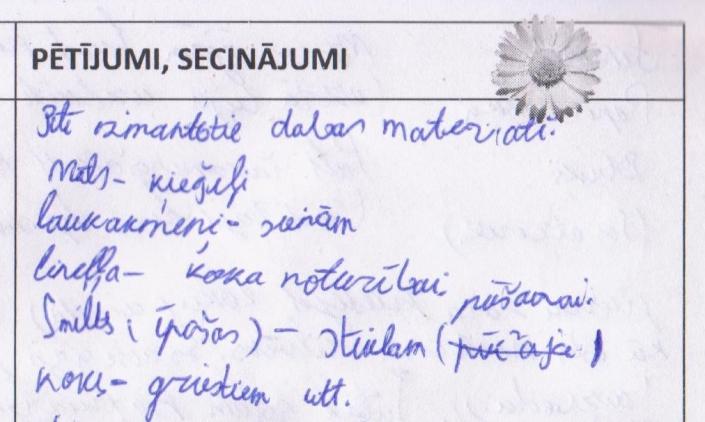 PĒTĪJUMI, SECINĀJUMI
izmantotie dabas materiāli:
Māls - ķieģeļi
laukakmeņi - sienām
lineļļa - koka noturībai
Smilts (īpašas) - stiklam (pūtēja)
koki - griestiem utt.